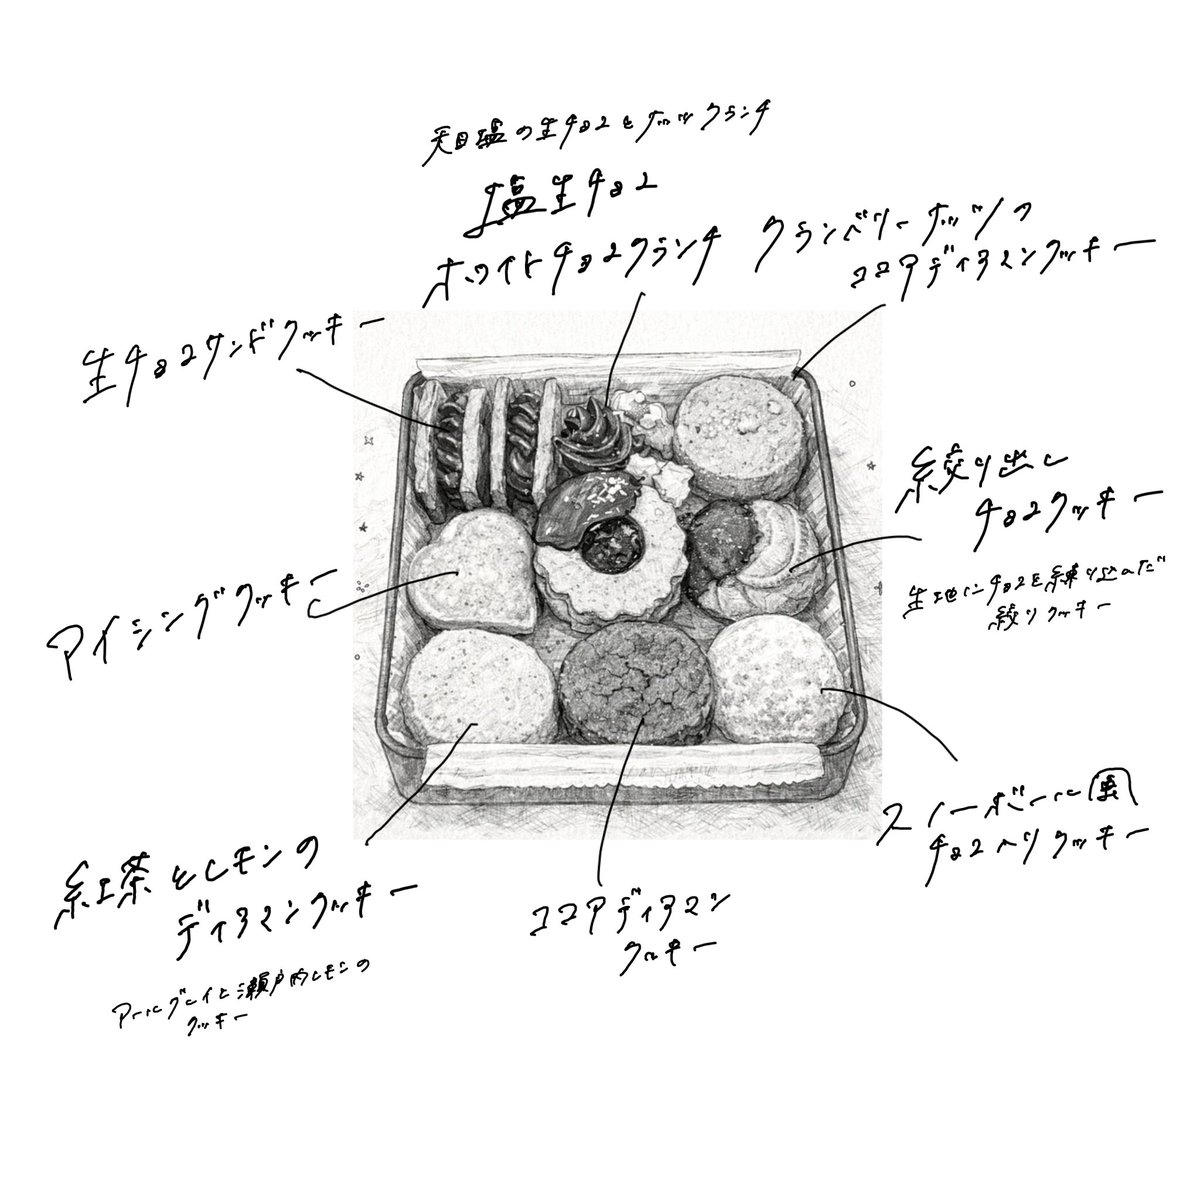 天日塩の生チョコとナッツクランチ
塩生チョコ
ホワイトチョコクランチ
クランベリーナッツの
ココアディアマンクッキー
生チョコサンドクッキー
絞り出し
チョコクッキー
生地にチョコを練り込んだ
絞りクッキー
アイシングクッキー
スノーボール風
チョコ入りクッキー
紅茶とレモンの
ディアマンクッキー
アールグレイと瀬戸内レモンの
クッキー
ココアディアマン
クッキー